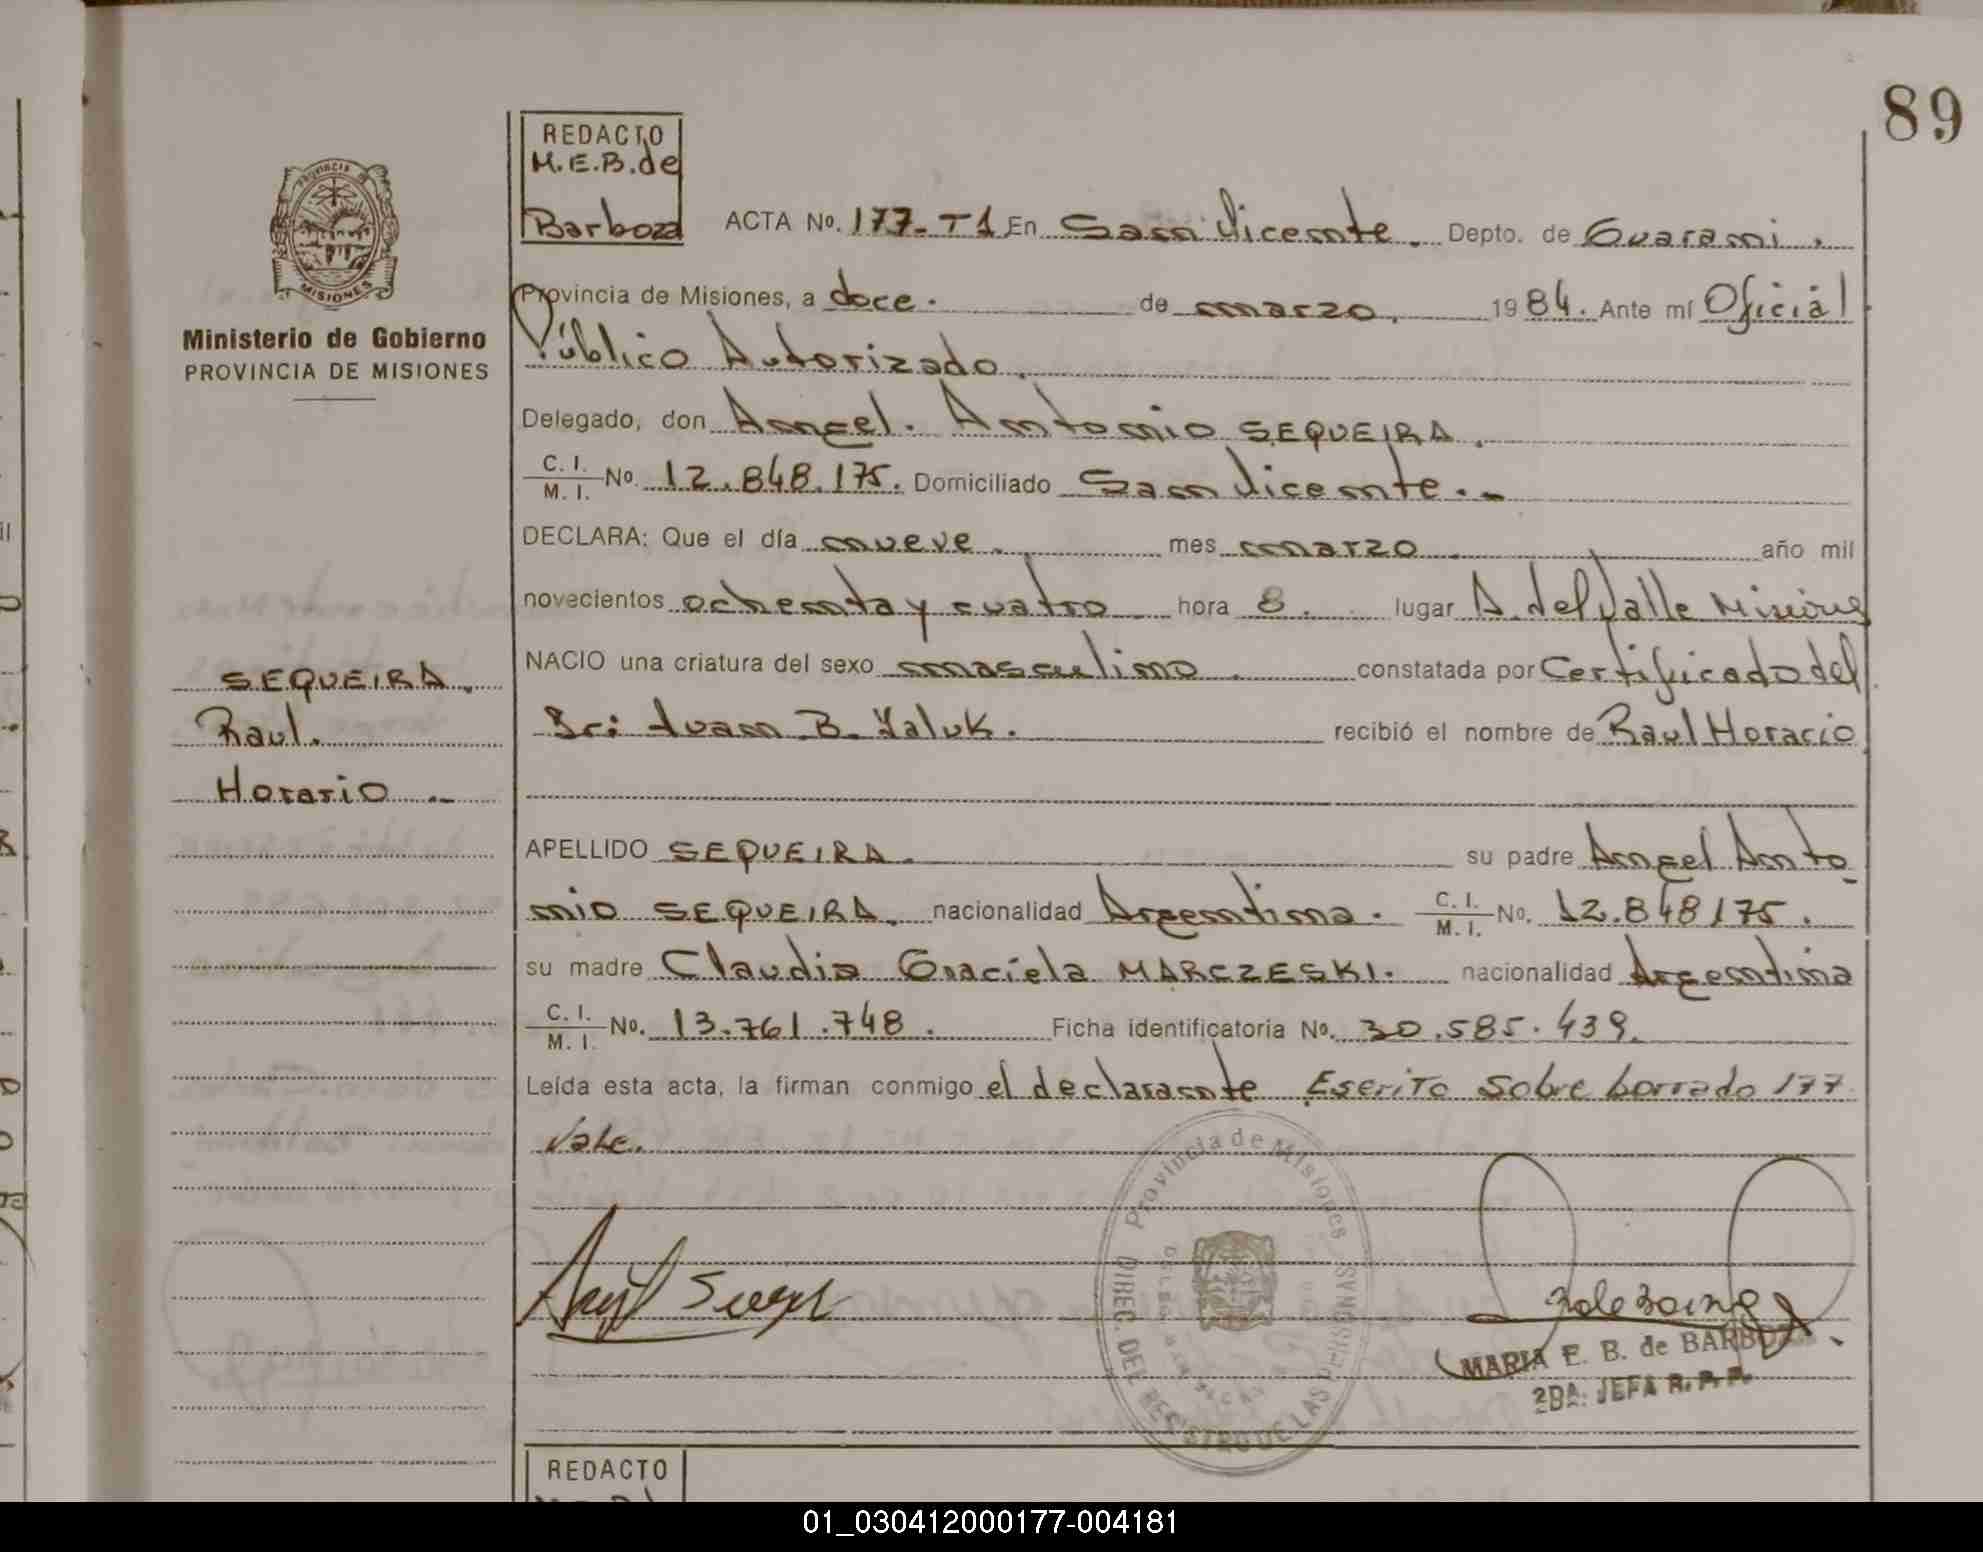 89
REDACTO
M.E.B.de
Barboza
ACTA No. 177-T1 En San Vicente. Depto. de Guarani.
Provincia de Misiones, a doce. de marzo. 1984. Ante mí Oficial
Público Autorizado.
Delegado, don Angel. Antonio SEQUEIRA.
C. I.
M. I. No. 12.848.175. Domiciliado San Vicente.-
DECLARA: Que el día nueve. mes marzo. año mil
novecientos ochenta y cuatro hora 8. lugar A. del Valle Misiones
NACIO una criatura del sexo masculino. constatada por Certificado del
Dr: Juan B. Yaluk. recibió el nombre de Raul Horacio
APELLIDO SEQUEIRA. su padre Angel Anto
nio SEQUEIRA. nacionalidad Argentina. C. I.
M. I. No. 12.848175.
su madre Claudia Graciela MARCZESKI. nacionalidad Argentina
C. I.
M. I. No. 13.761.748. Ficha identificatoria No. 30.585.439.
Leída esta acta, la firman conmigo el declarante Escrito sobre borrado 177
Vale.
PROVINCIA DE
MISIONES
Ministerio de Gobierno
PROVINCIA DE MISIONES
SEQUEIRA.
Raul.
Horacio.-
Provincia de Misiones
DIREC. DEL REGISTRO DE LAS PERSONAS
MARIA E. B. de BARBOZA
2DA. JEFA R. P. P.
REDACTO
01_030412000177-004181